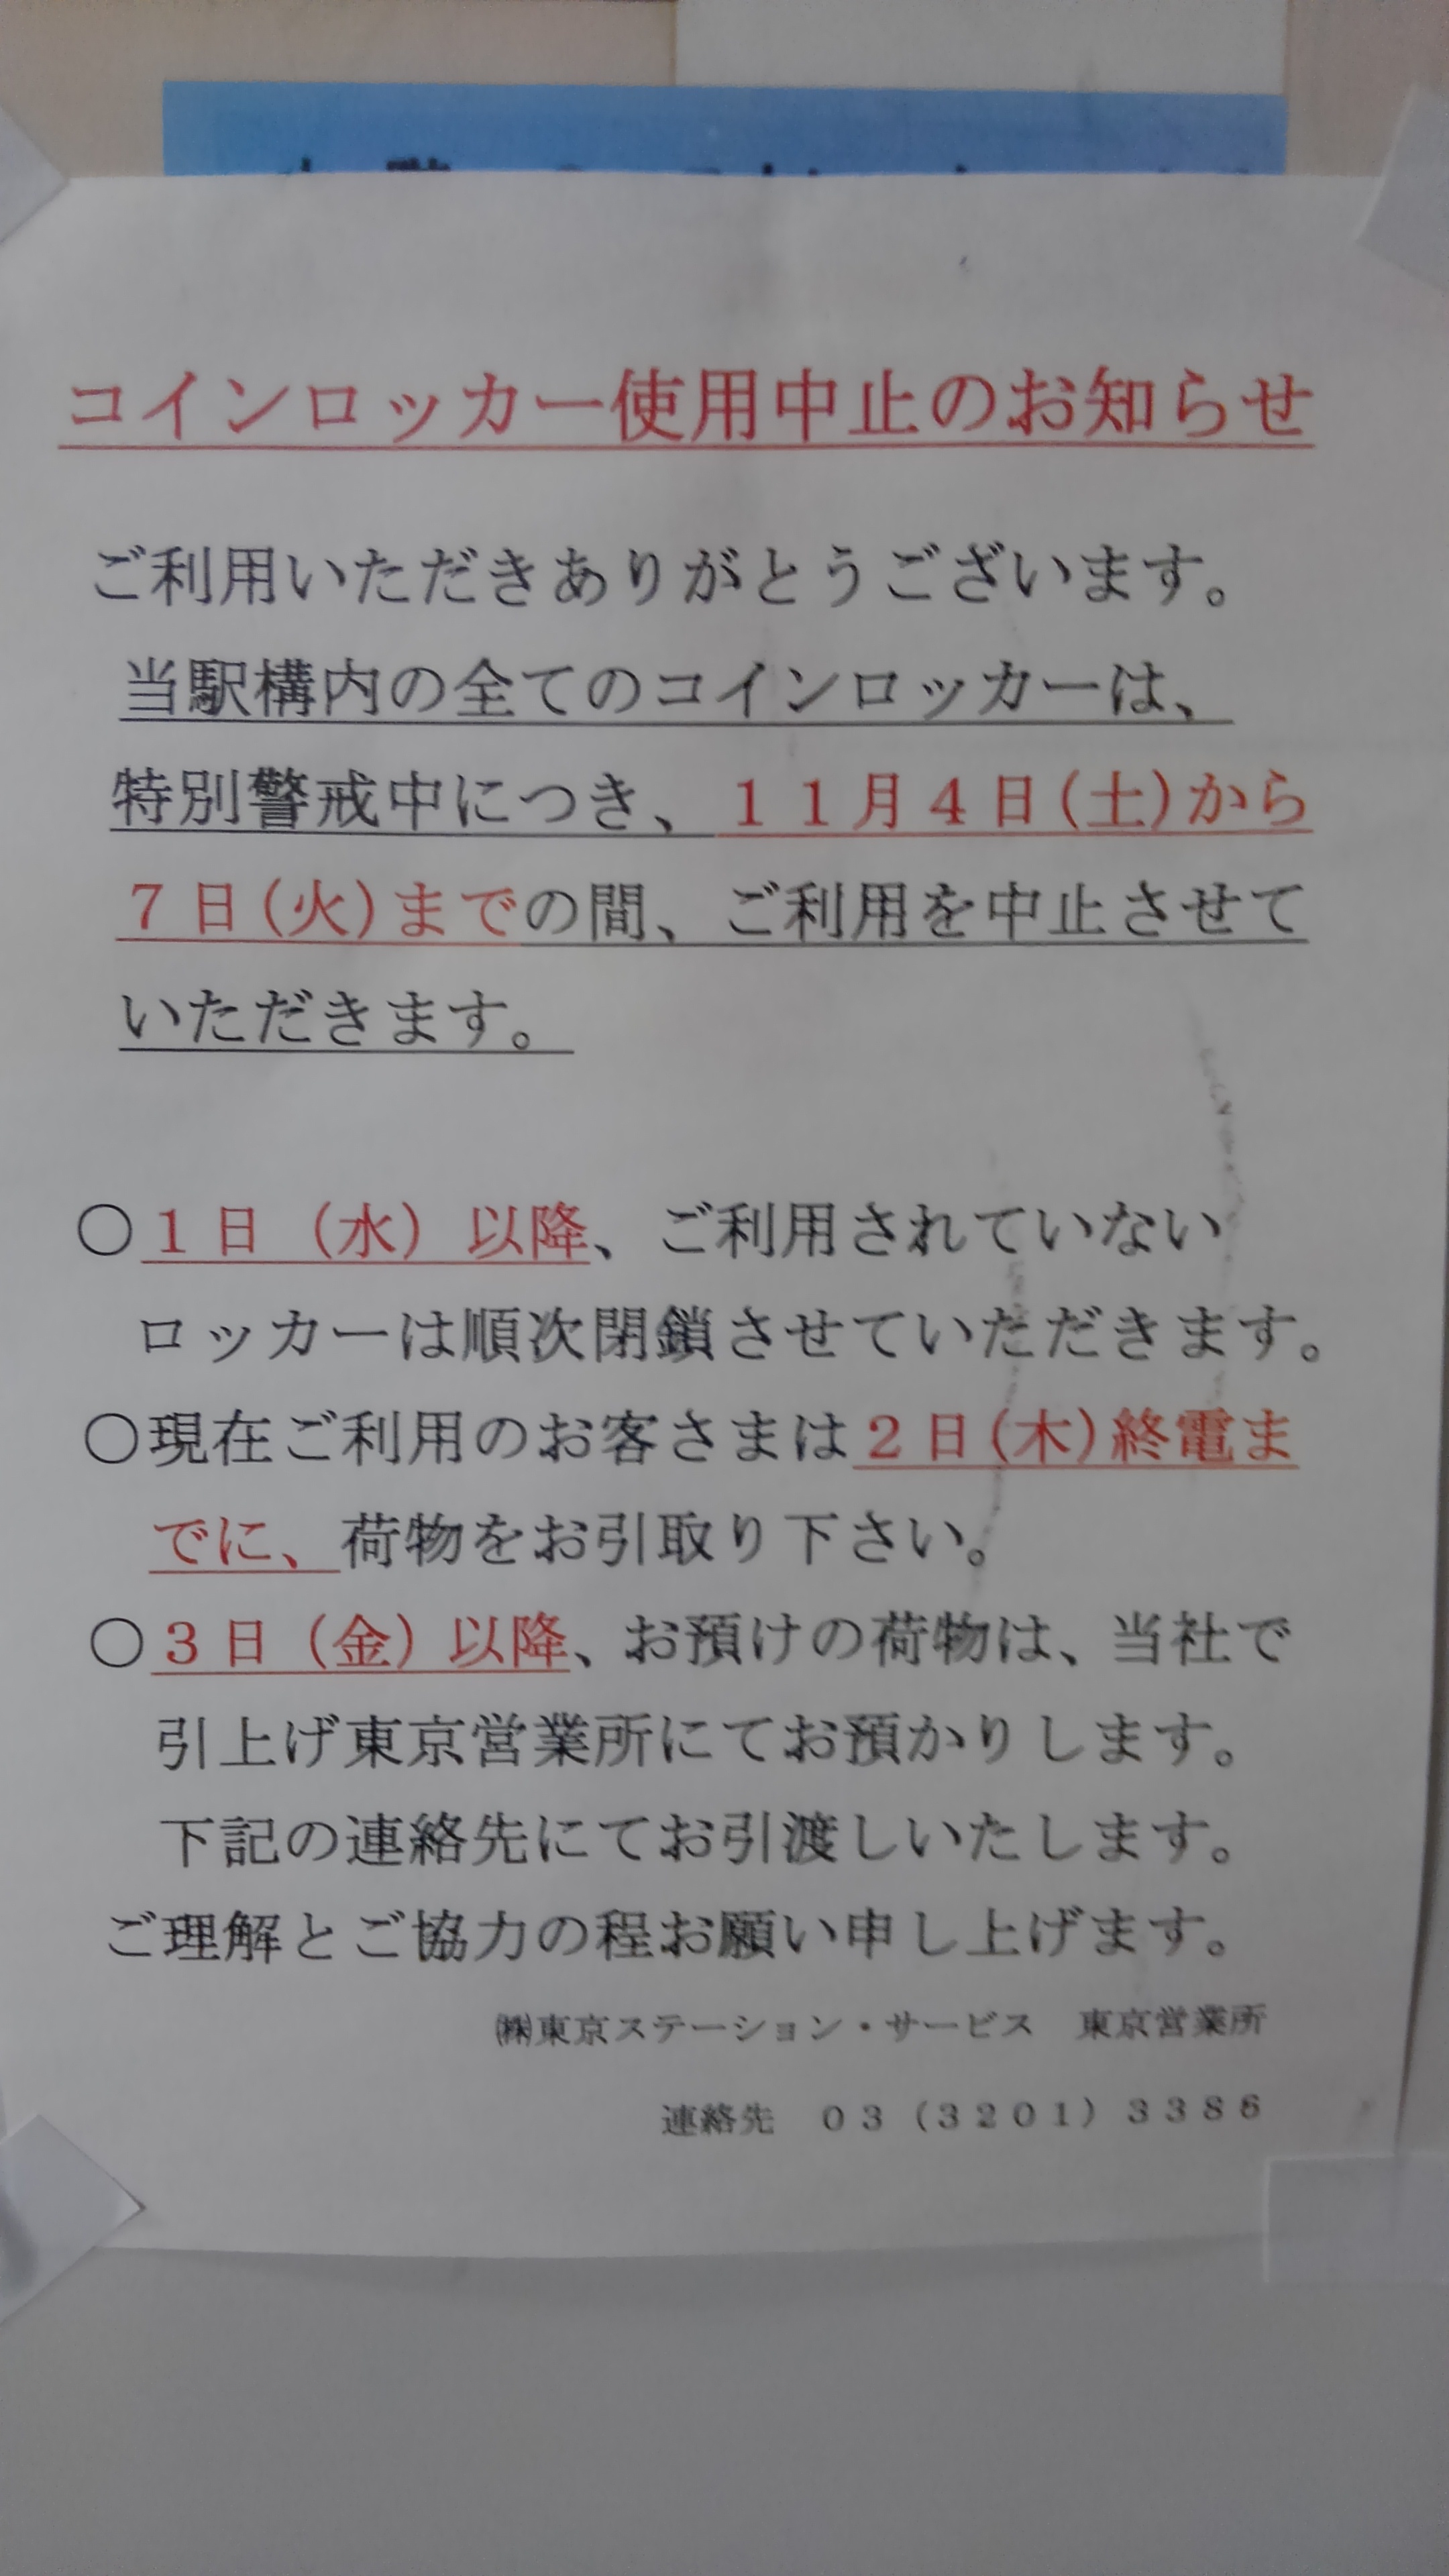 コインロッカー使用中止のお知らせ
ご利用いただきありがとうございます。
当駅構内の全てのコインロッカーは、
特別警戒中につき、１１月４日(土)から
７日(火)までの間、ご利用を中止させて
いただきます。
○１日（水）以降、ご利用されていない
ロッカーは順次閉鎖させていただきます。
○現在ご利用のお客さまは２日(木)終電ま
でに、荷物をお引取り下さい。
○３日（金）以降、お預けの荷物は、当社で
引上げ東京営業所にてお預かりします。
下記の連絡先にてお引渡しいたします。
ご理解とご協力の程お願い申し上げます。
㈱東京ステーション・サービス　東京営業所
連絡先　０３（３２０１）３３８６